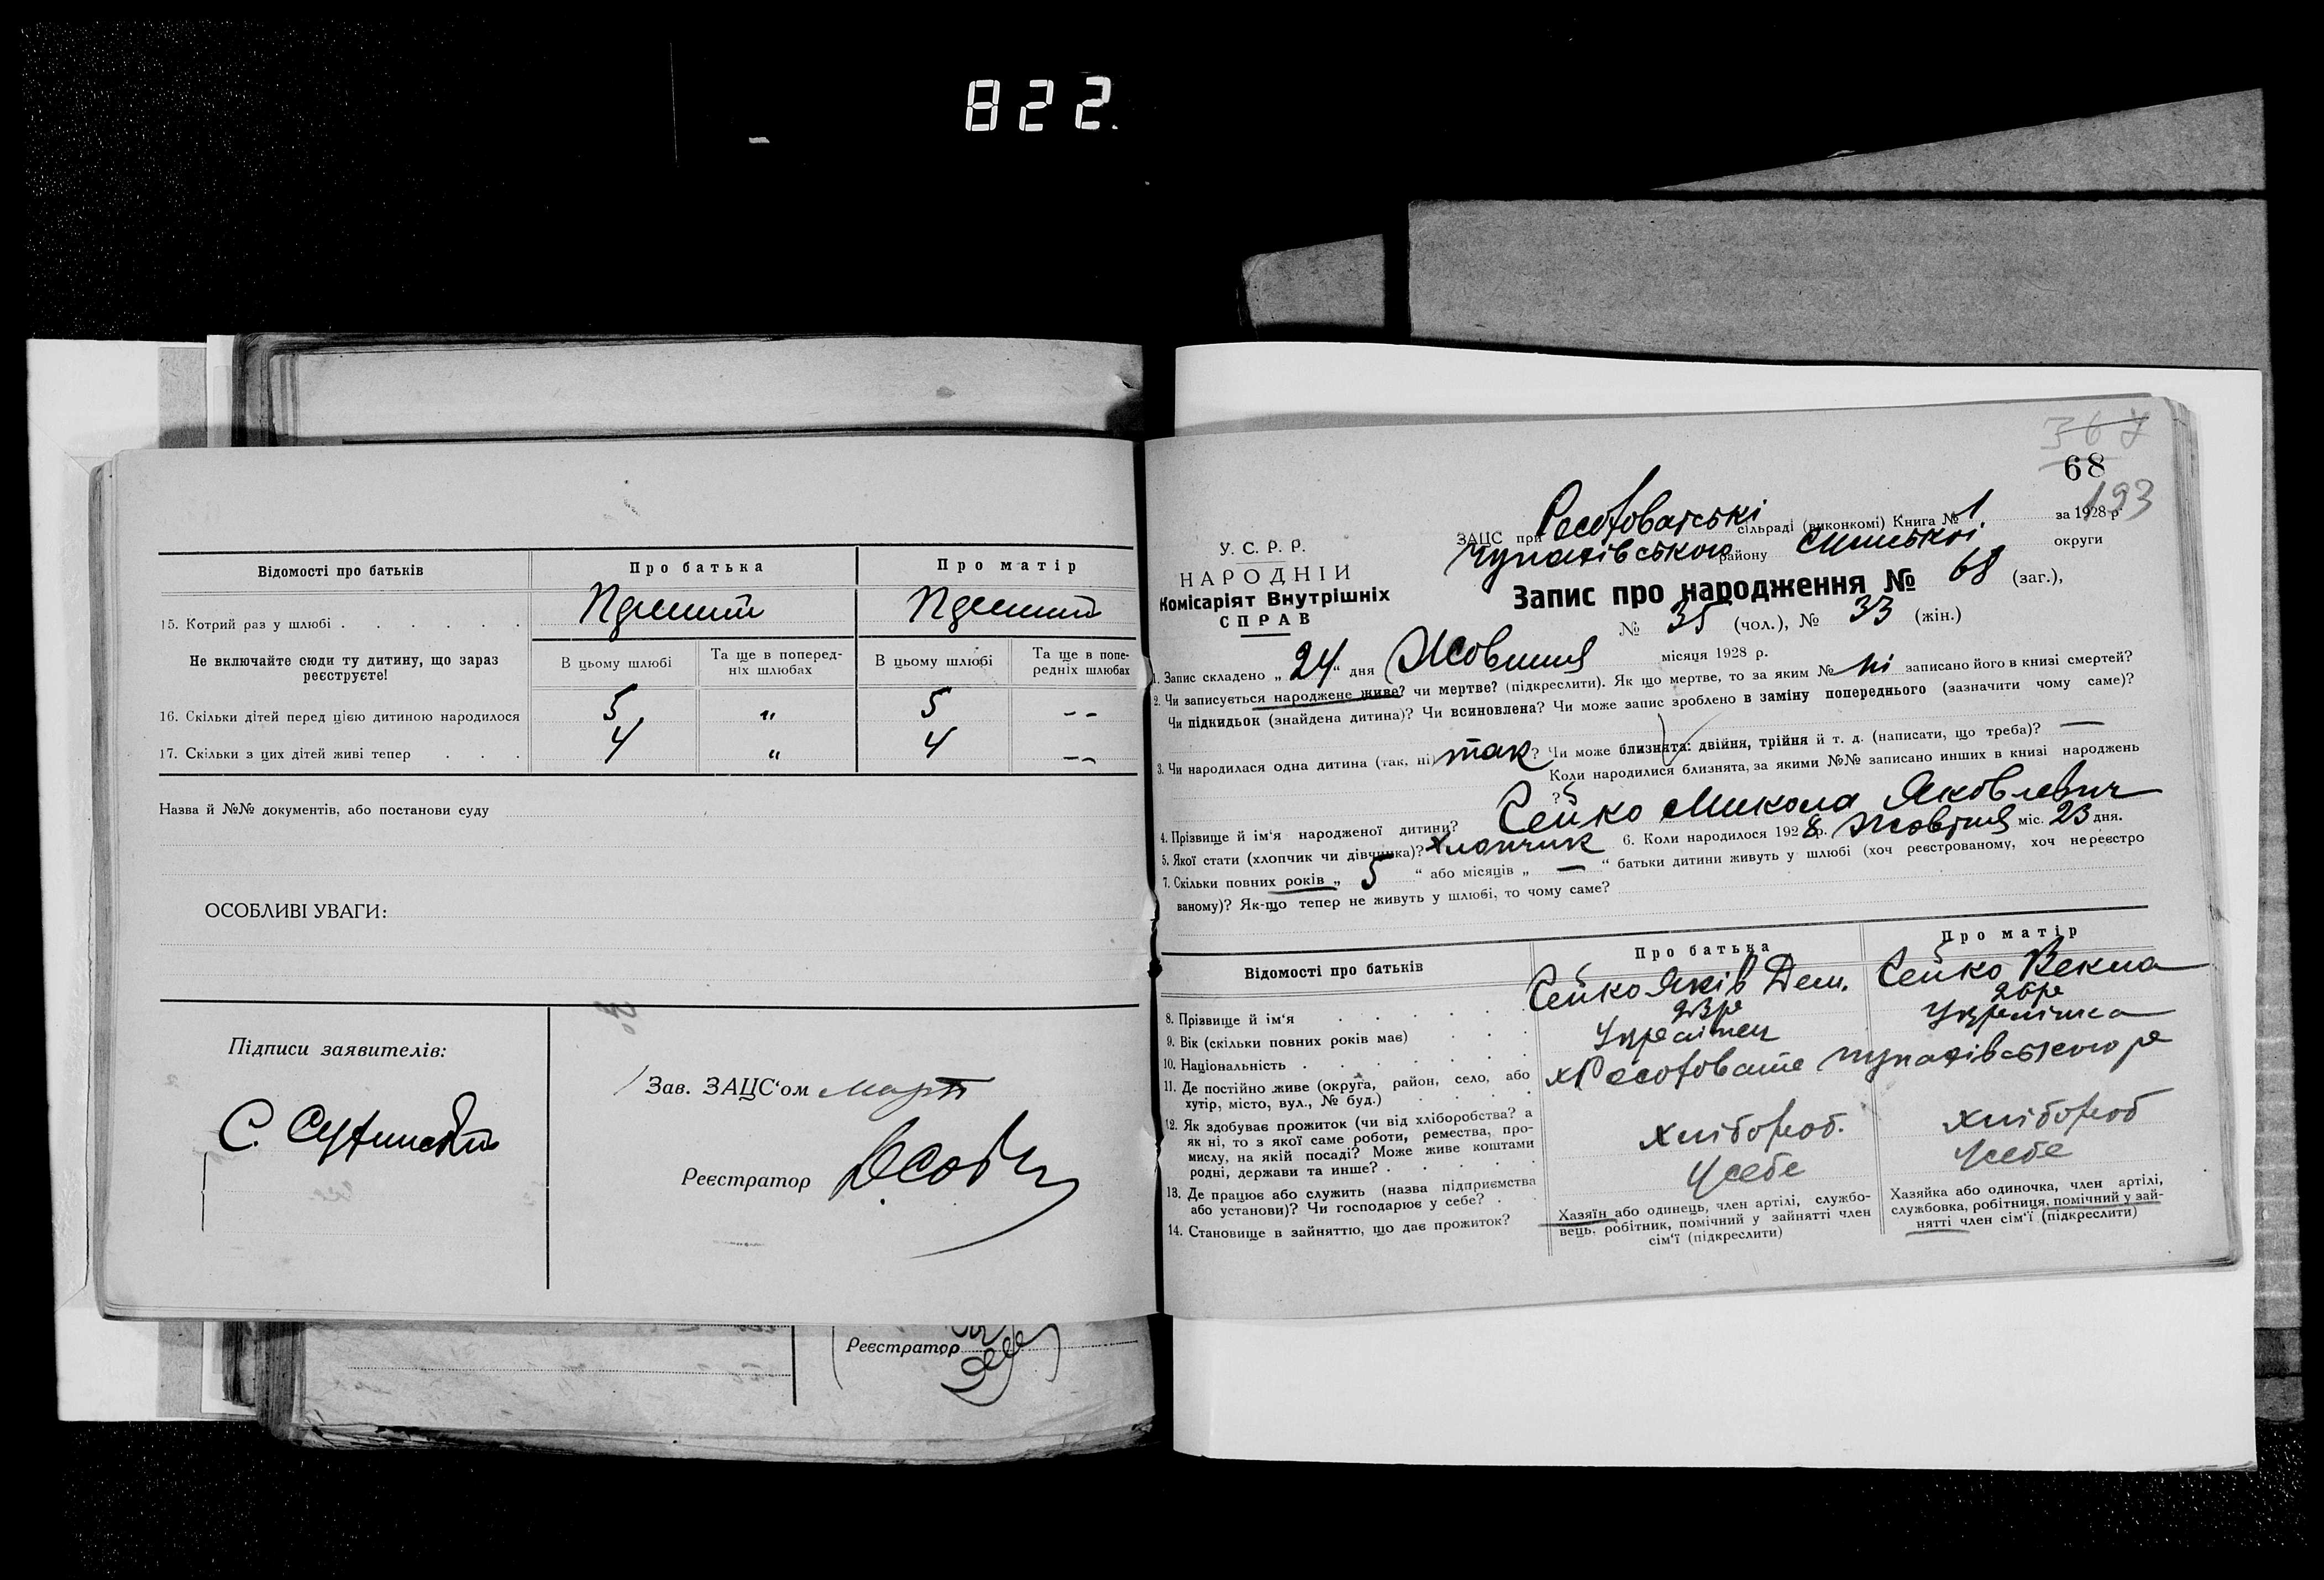 822.
Відомості про батьків
Про батька
Про матір
15. Котрий раз у шлюбі . . . . . .
Не включайте сюди ту дитину, що зараз
реєструєте!
В цьому шлюбі
Та ще в поперед-
ніх шлюбах
В цьому шлюбі
Та ще в попе-
редніх шлюбах
16. Скільки дітей перед цією дитиною народилося 5 „ 5 --
17. Скільки з цих дітей живі тепер . . . 4 „ 4 --
Назва й №№ документів, або постанови суду
ОСОБЛИВІ УВАГИ:
Підписи заявителів:
Зав. ЗАЦС‘ом
Реєстратор
Реєстратор
367
68
193
У. С. Р. Р.
НАРОДНІЙ
Комісаріят Внутрішніх
СПРАВ
ЗАЦС при сільраді (виконкомі) Книга № 1 за 1928 р.
району Сумської округи
Запис про народження № 68 (заг.),
№ 35 (чол.), № 33 (жін.)
1. Запис складено „24“ дня Жовтня місяця 1928 р.
2. Чи записується народжене живе? чи мертве? (підкреслити). Як що мертве, то за яким № ні записано його в книзі смертей?
Чи підкидьок (знайдена дитина)? Чи всиновлена? Чи може запис зроблено в заміну попереднього (зазначити чому саме)?
3. Чи народилася одна дитина (так, ні) так? Чи може близнята: двійня, трійня й т. д. (написати, що треба)? —
Коли народилися близнята, за якими №№ записано инших в книзі народжень
?
4. Прізвище й ім‘я народженої дитини? Сейко Микола Яковлевич
5. Якої стати (хлопчик чи дівчинка)? хлопчик 6. Коли народилося 1928 р. жовтня міс. 23 дня.
7. Скільки повних років „ 5 “ або місяців „ — “ батьки дитини живуть у шлюбі (хоч реєстрованому, хоч нереєстро
ваному)? Як-що тепер не живуть у шлюбі, то чому саме?
Відомості про батьків
Про батька
Про матір
8. Прізвище й ім‘я . . . . . Сейко Яків Дем. Сейко Векла
9. Вік (скільки повних років має) . .
10. Національність . . . . . .
11. Де постійно живе (округа, район, село, або
хутір, місто, вул., № буд.) . . . .
12. Як здобуває прожиток (чи від хліборобства? а
як ні, то з якої саме роботи, ремества, про-
мислу, на якій посаді? Може живе коштами
родні, держави та инше? . . . . .
хлібороб. хлібороб
13. Де працює або служить (назва підприємства
або установи)? Чи господарює у себе? .
У себе У себе
14. Становище в зайняттю, що дає прожиток?
Хазяїн або одинець, член артілі, службо-
вець, робітник, помічний у зайнятті член
сім‘ї (підкреслити)
Хазяйка або одиночка, член артілі,
службовка, робітниця, помічний у зай-
нятті член сім‘ї (підкреслити)